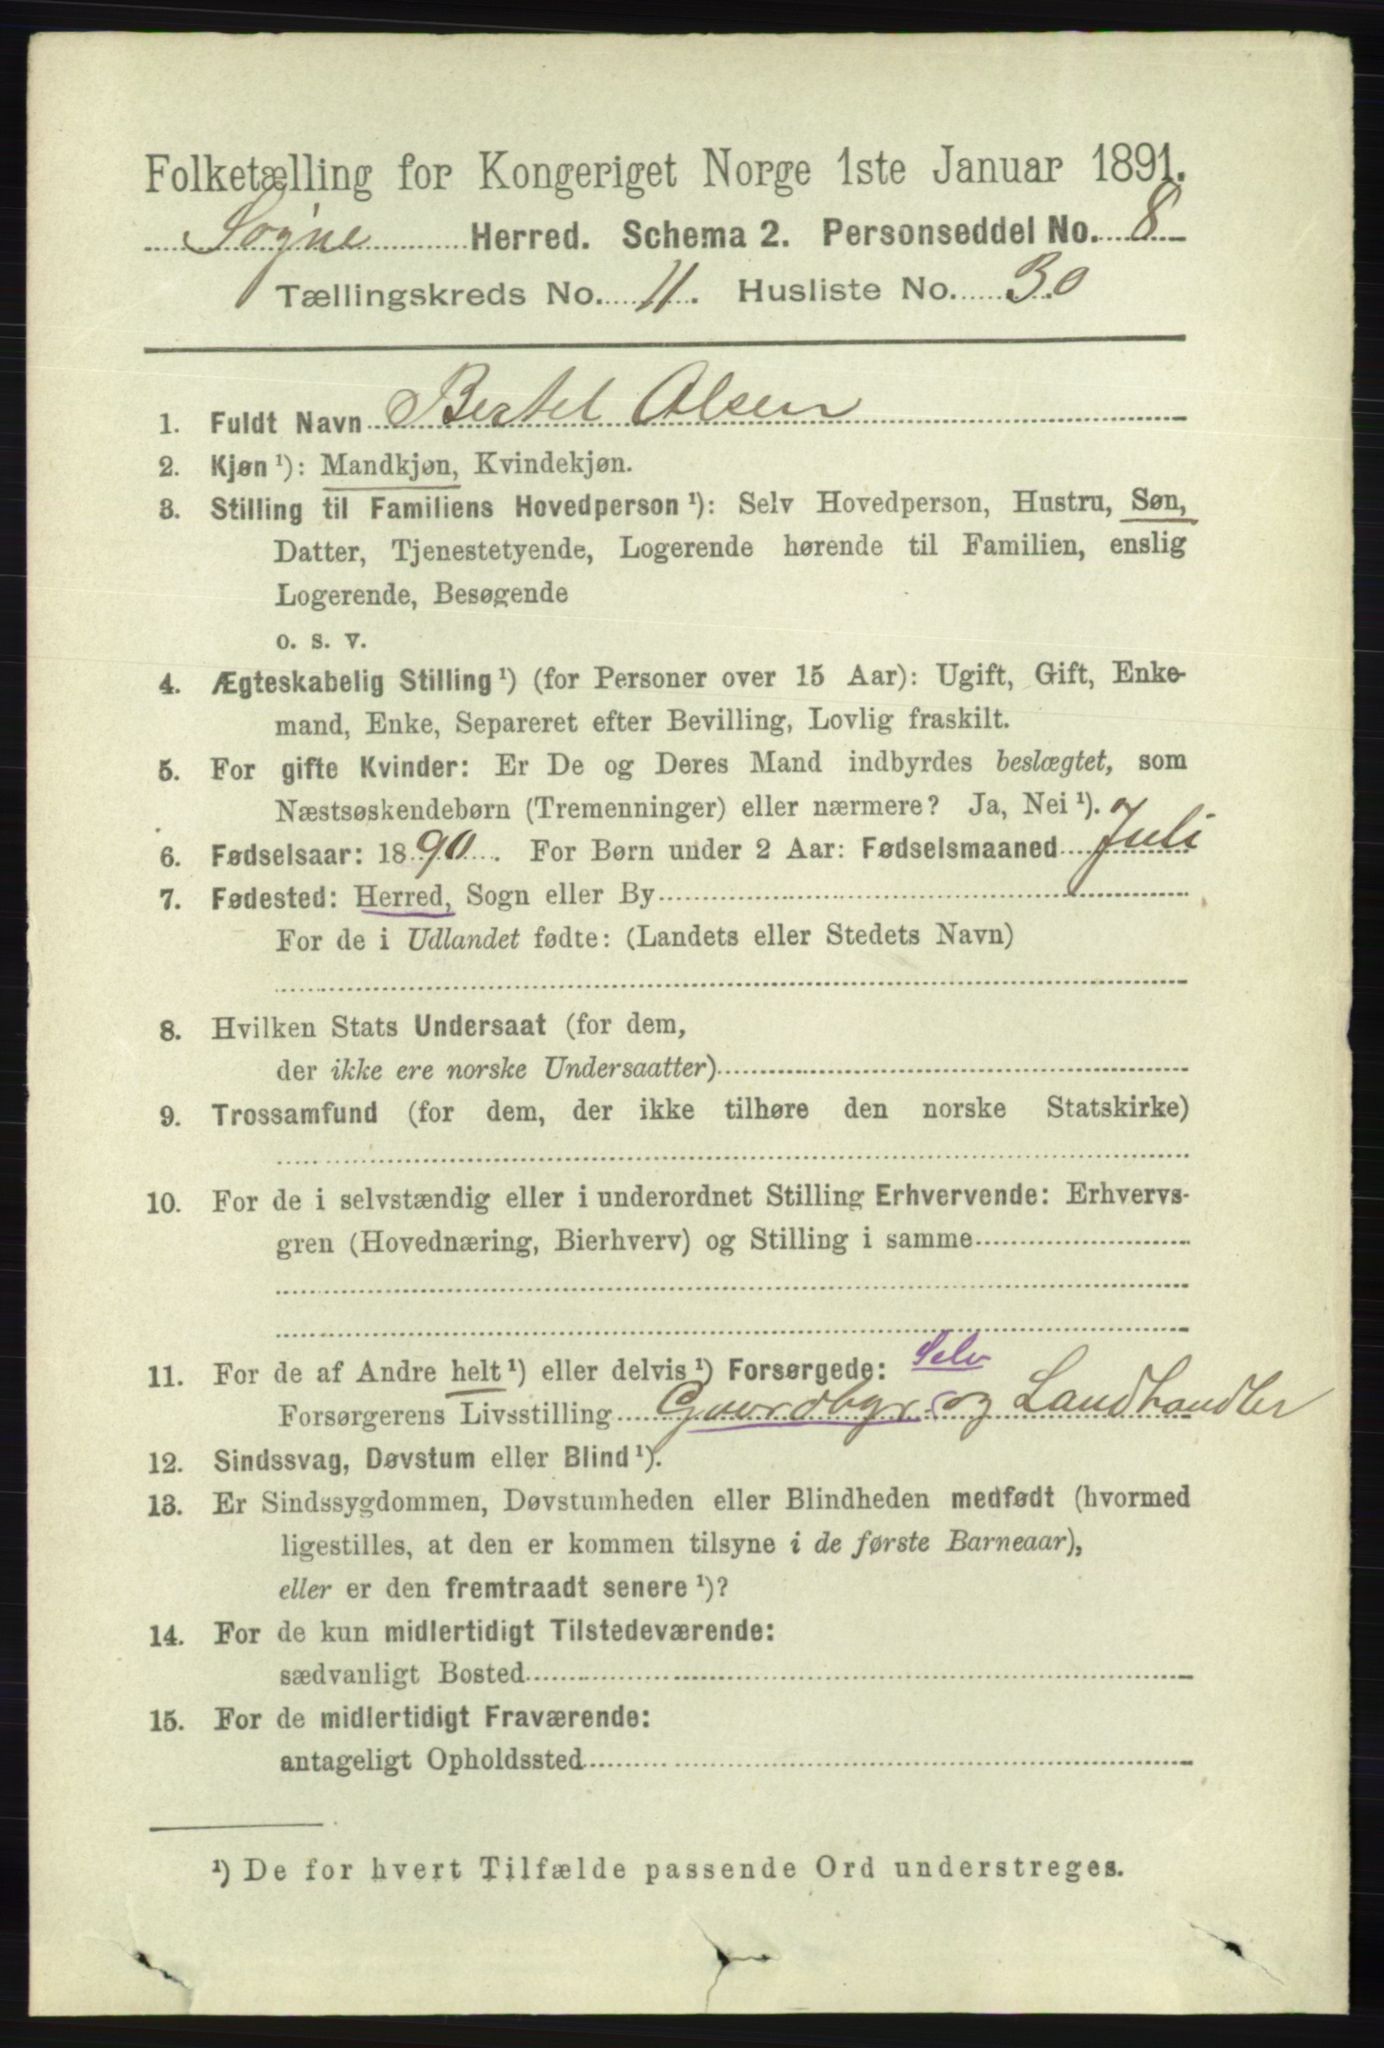 Folketælling for Kongeriget Norge 1ste Januar 1891.
Søgne Herred. Schema 2. Personseddel No. 8
Tællingskreds No. 11. Husliste No. 30
1. Fuldt Navn Bertel Olsen
2. Kjøn ¹): Mandkjøn, Kvindekjøn.
3. Stilling til Familiens Hovedperson ¹): Selv Hovedperson, Hustru, Søn,
Datter, Tjenestetyende, Logerende hørende til Familien, enslig
Logerende, Besøgende
o. s. v.
4. Ægteskabelig Stilling ¹) (for Personer over 15 Aar): Ugift, Gift, Enke-
mand, Enke, Separeret efter Bevilling, Lovlig fraskilt.
5. For gifte Kvinder: Er De og Deres Mand indbyrdes beslægtet, som
Næstsøskendebørn (Tremenninger) eller nærmere? Ja, Nei ¹).
6. Fødselsaar: 1890. For Børn under 2 Aar: Fødselsmaaned Juli
7. Fødested: Herred, Sogn eller By
For de i Udlandet fødte: (Landets eller Stedets Navn)
8. Hvilken Stats Undersaat (for dem,
der ikke ere norske Undersaatter)
9. Trossamfund (for dem, der ikke tilhøre den norske Statskirke)
10. For de i selvstændig eller i underordnet Stilling Erhvervende: Erhvervs-
gren (Hovednæring, Bierhverv) og Stilling i samme
11. For de af Andre helt ¹) eller delvis ¹) Forsørgede: Selv
Forsørgerens Livsstilling Gaardbgr. og Landhandler
12. Sindssvag, Døvstum eller Blind ¹).
13. Er Sindssygdommen, Døvstumheden eller Blindheden medfødt (hvormed
ligestilles, at den er kommen tilsyne i de første Barneaar),
eller er den fremtraadt senere ¹)?
14. For de kun midlertidigt Tilstedeværende:
sædvanligt Bosted
15. For de midlertidigt Fraværende:
antageligt Opholdssted
¹) De for hvert Tilfælde passende Ord understreges.